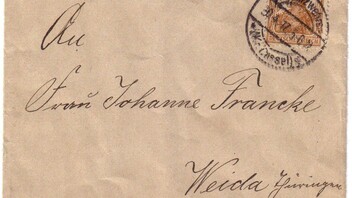 An
Frau Johanne Francke
Weida Thüringen